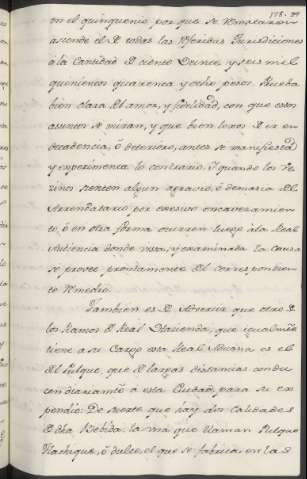 en el quinquenio, por que se Remataron
asciende el de todas las referidas Jurisdiciones
à la Cantidad de ciento veinte, y seis mil
quinientos quarenta y ocho pesos. Prueba
bien clara del amor, y fidelidad, con que estos
asuntos se miran, y que bien lexos de ir en
decadencia, ò deterioro, antes se manifiesta
y experimenta lo contrario, y quando los Ve
cinos sienten algun agravio, ò demacia del
Arrendatario, por excesivo encavezamien
to, ò en otra forma ocurren luego à la Real
Audiencia donde vista, y examinada la causa
se provee prontamente del correspondien
te Remedio.
Tambien es de Advertir que otro de
los Ramos de Real Hacienda, que igualmte
tiene a su Cargo esta Real Aduana es el
del Pulque, que de largas distancias condu
cen diariamte a esta Ciudad para su ex
pendio: De suerte que hay dos calidades
de dha Bebida: la una que llaman Pulque
Tlachique, ò dulce, el que se fabrica en las